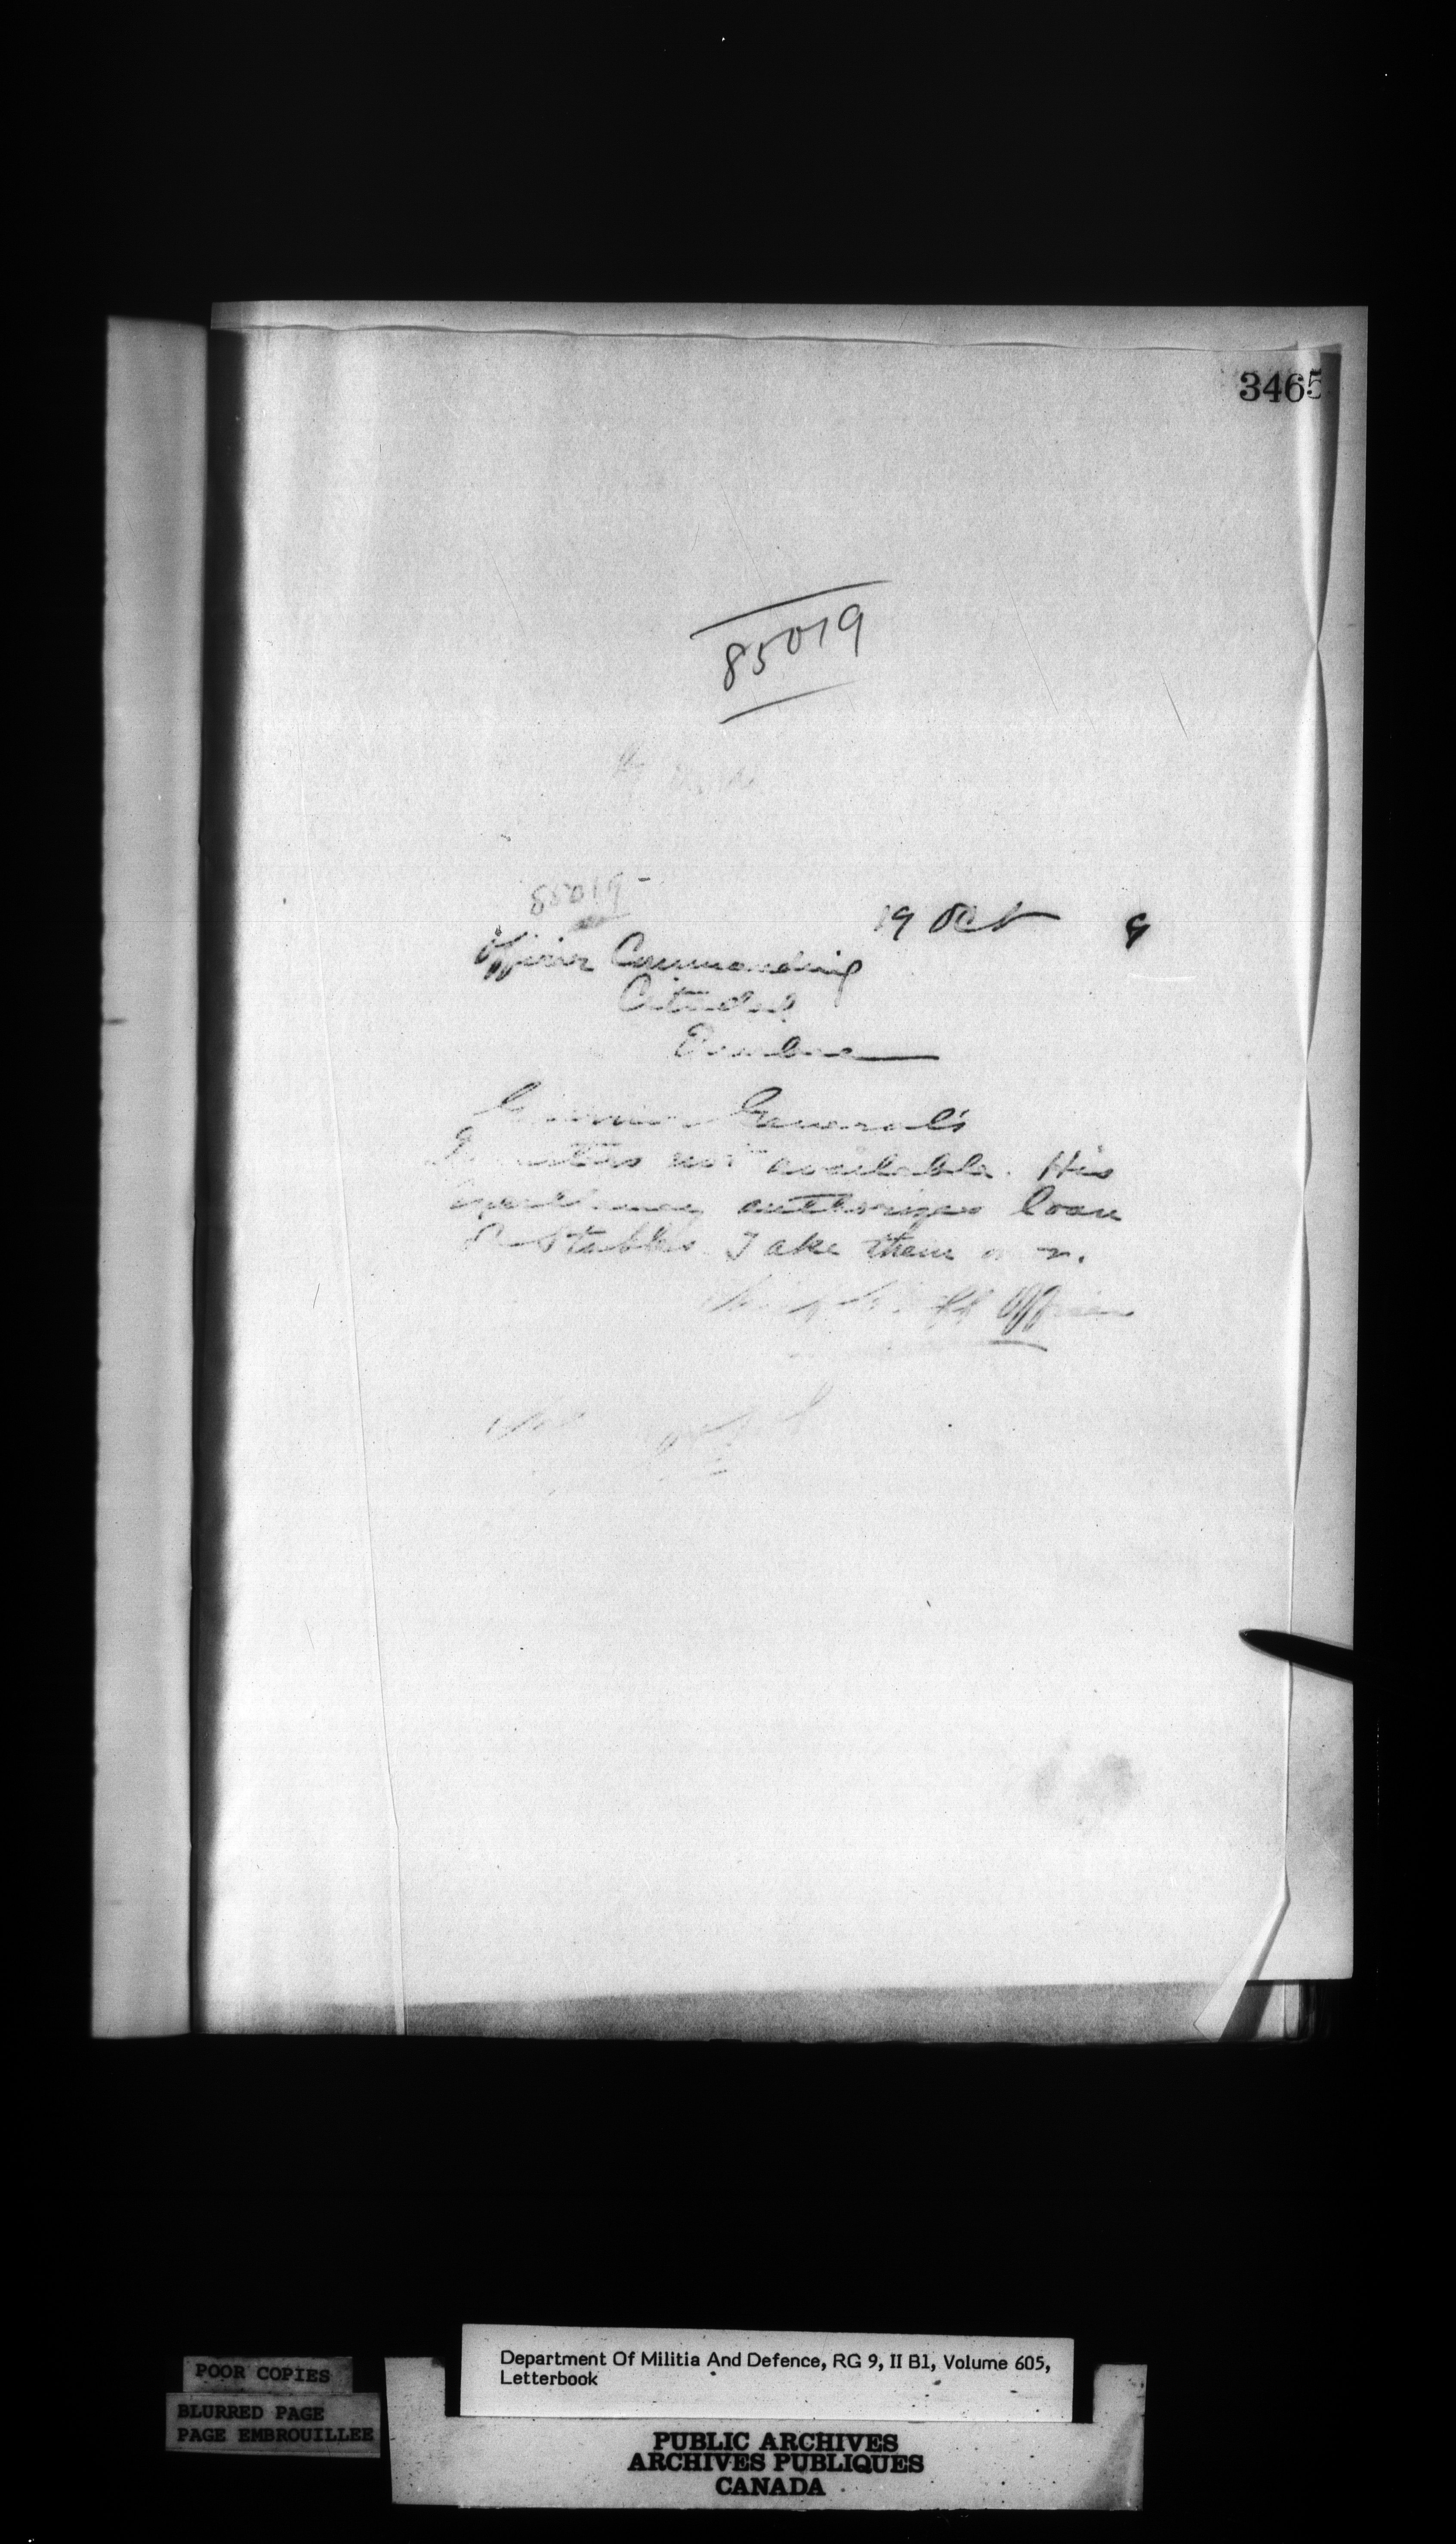 3465
85019
85019
19 Oct 9
Officer Commanding
Citadel
Quebec
Governor General's
Quarters not available. His
Excellency authorizes loan
of Stables. Take them over.
Chief Staff Officer
Department Of Militia And Defence, RG 9, II B1, Volume 605,
Letterbook
POOR COPIES
BLURRED PAGE
PAGE EMBROUILLEE
PUBLIC ARCHIVES
ARCHIVES PUBLIQUES
CANADA